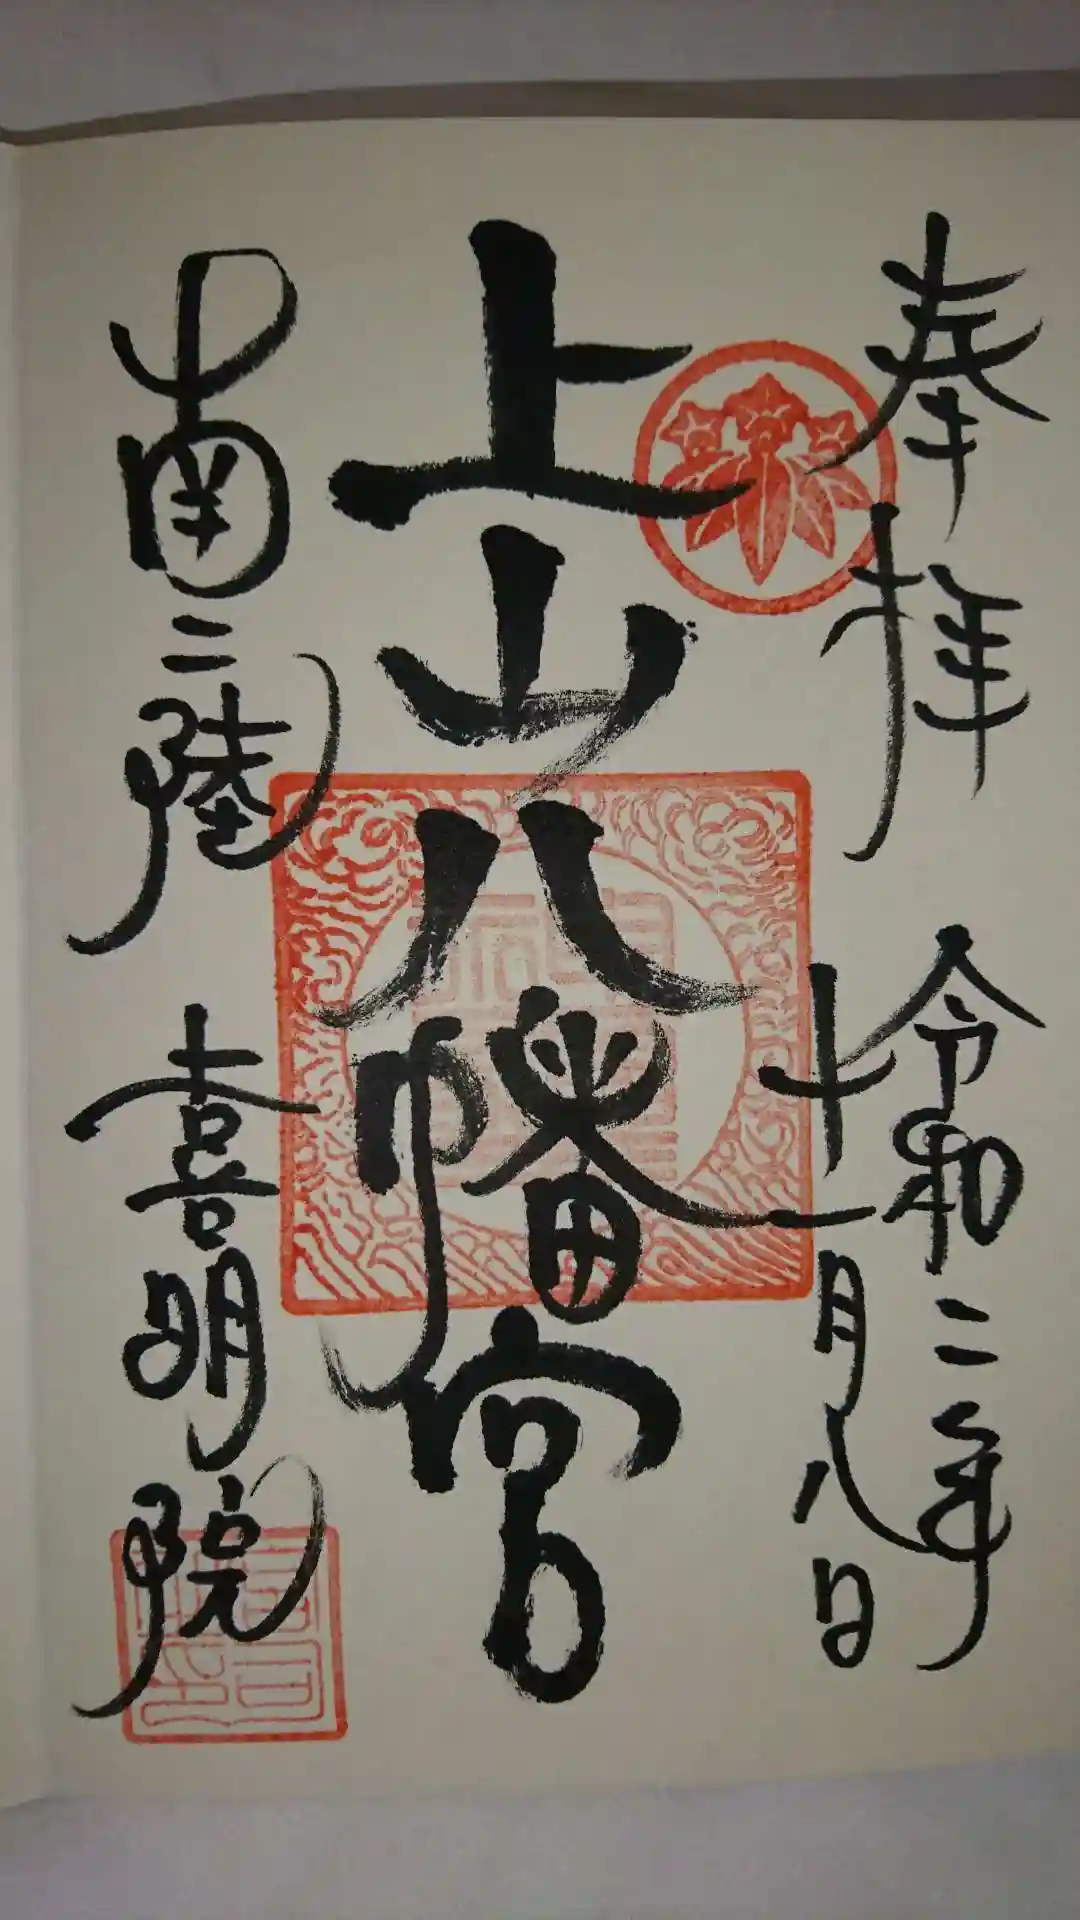 奉拝
令和二年
十一月八日
上山八幡宮
南三陸 喜明院